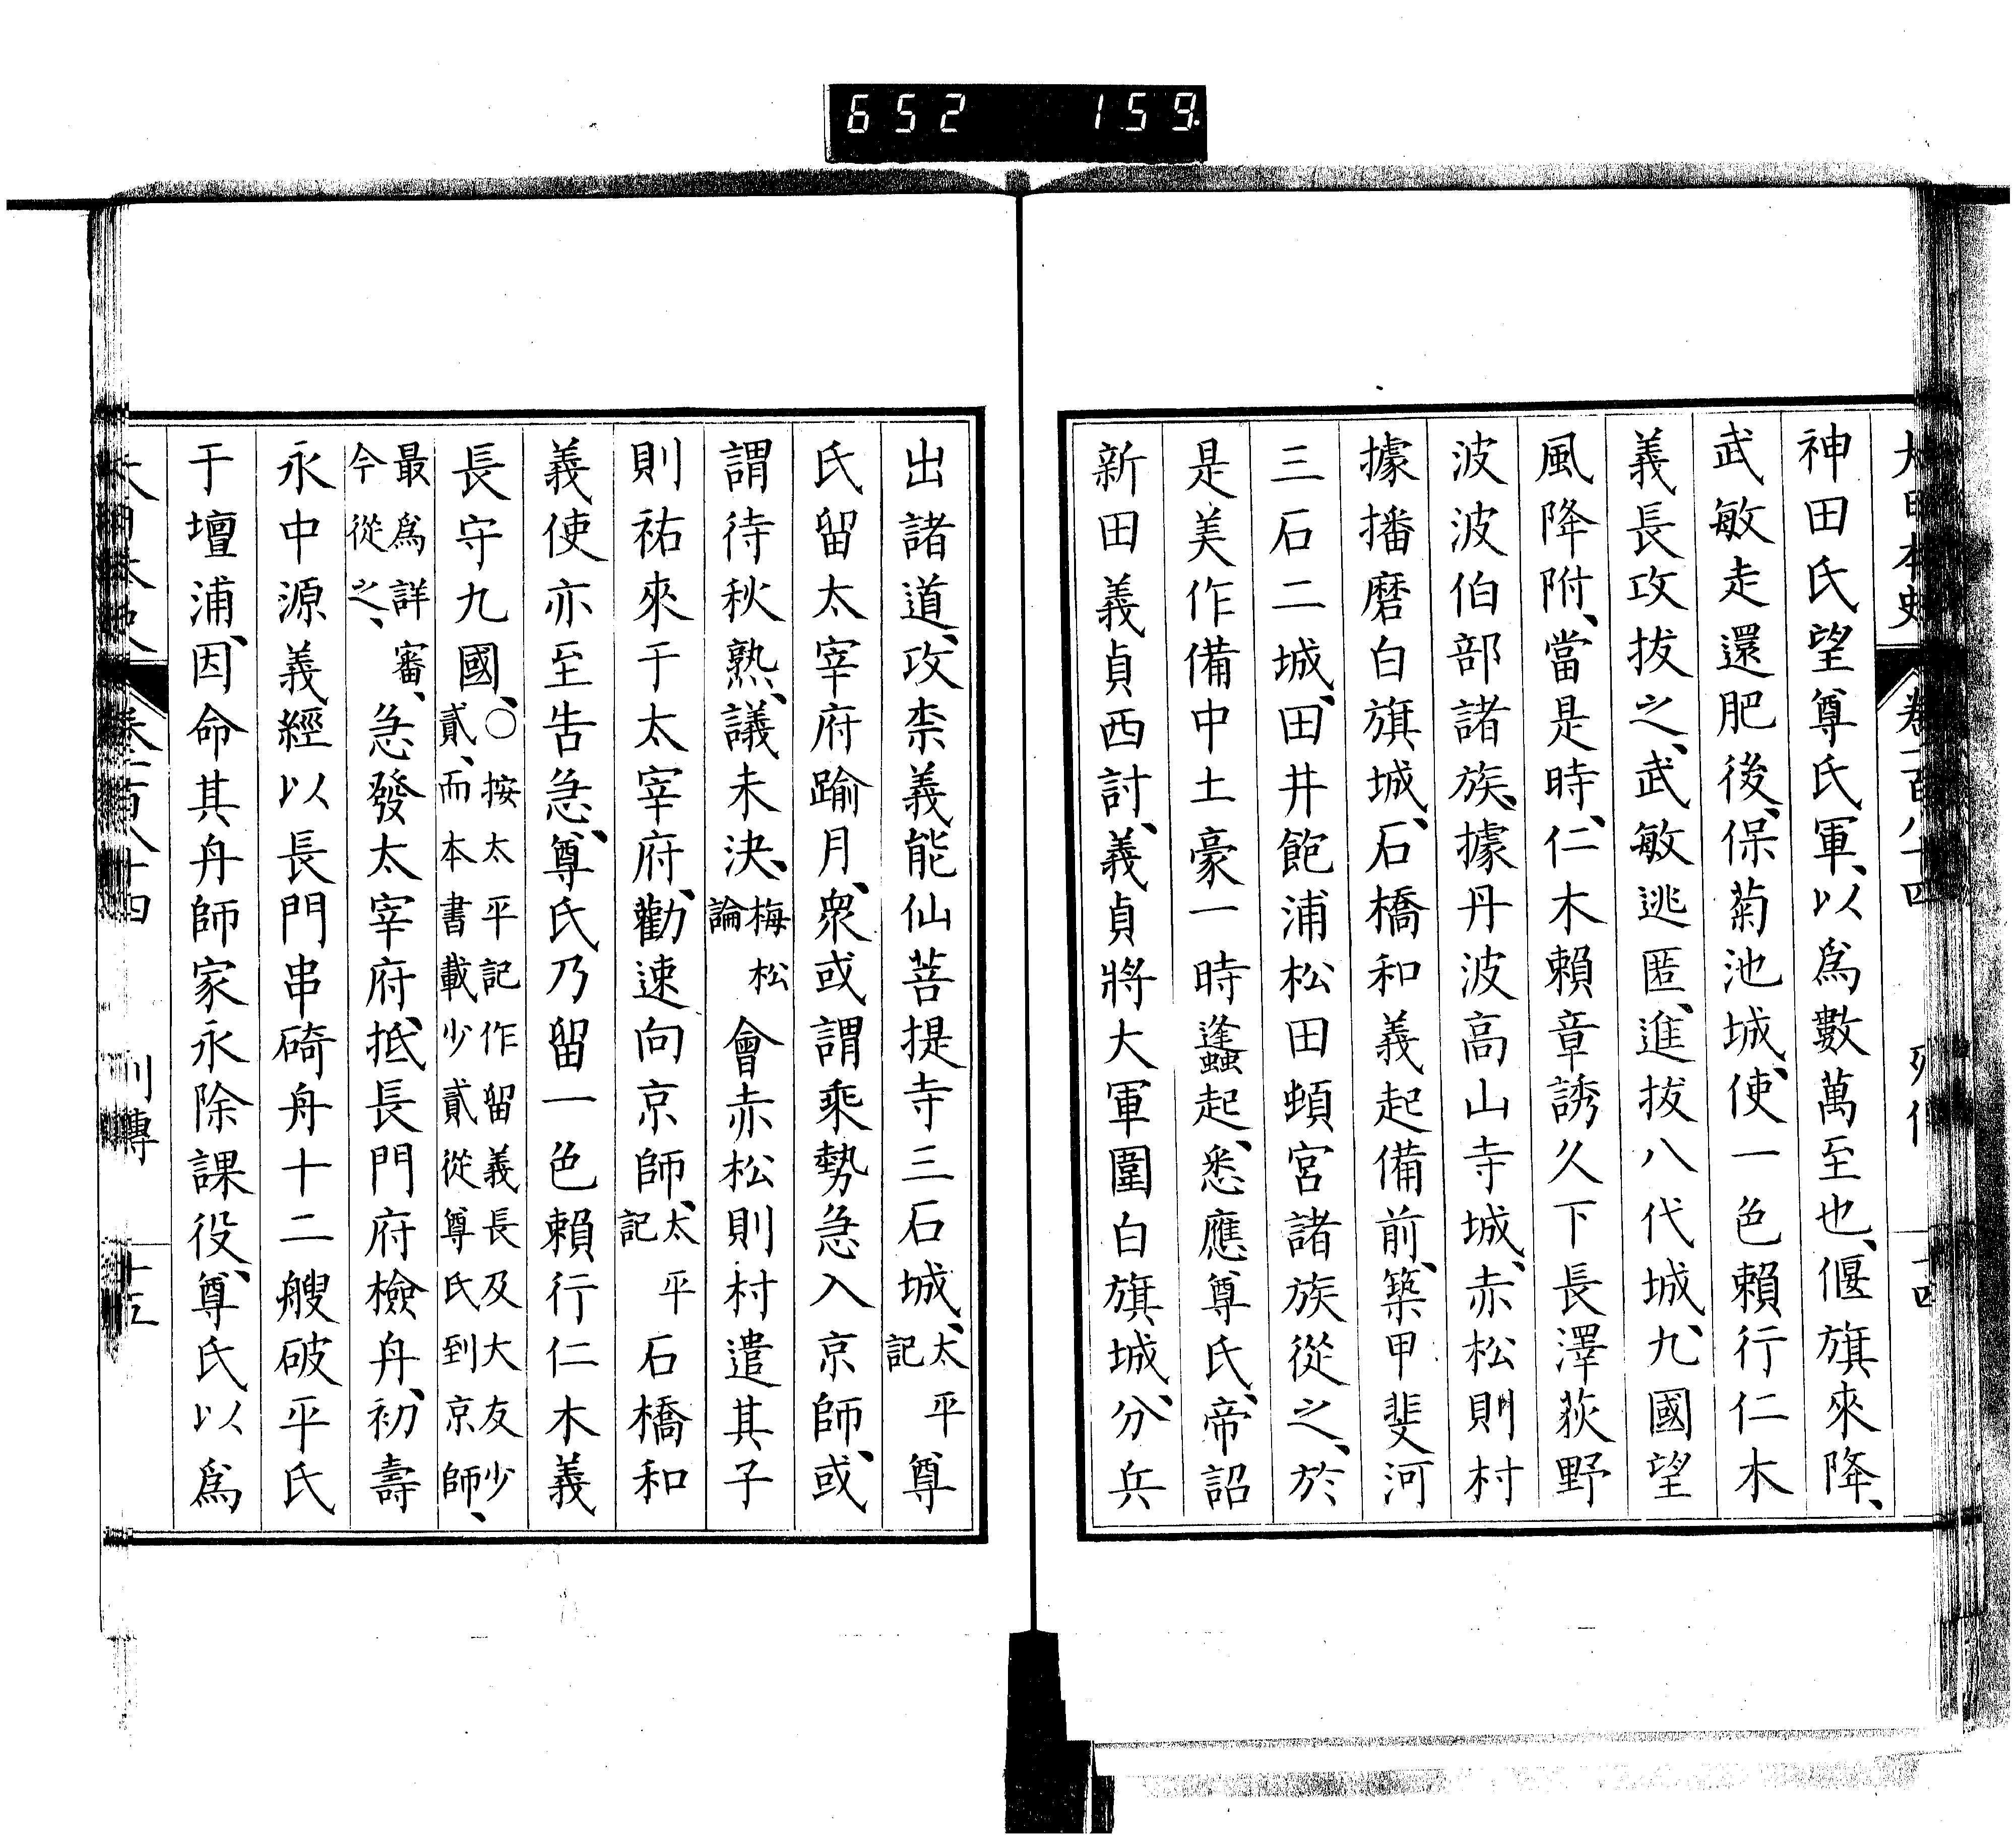 652 159
大日本史 卷一百八十四 列傳 十四
神田氏望尊氏軍、以爲數萬至也、偃旗來降、
武敏走還肥後、保菊池城、使一色賴行仁木
義長攻拔之、武敏逃匿、進拔八代城、九國望
風降附、當是時、仁木賴章誘久下長澤荻野
波波伯部諸族、據丹波高山寺城、赤松則村
據播磨白旗城、石橋和義起備前、築甲斐河
三石二城、田井飽浦松田頓宮諸族從之、於
是美作備中土豪一時蠭起、悉應尊氏、帝詔
新田義貞西討、義貞將大軍圍白旗城、分兵
出諸道、攻柰義能仙菩提寺三石城、太平記尊
氏留太宰府踰月、衆或謂乘勢急入京師、或
謂待秋熟、議未決、梅松論會赤松則村遣其子
則祐來于太宰府、勸速向京師、太平記石橋和
義使亦至告急、尊氏乃留一色賴行仁木義
長守九國、○按太平記作留義長及大友少貳、而本書載少貳從尊氏到京師、
最爲詳審、今從之、急發太宰府、抵長門府檢舟、初壽
永中源義經以長門串碕舟十二艘破平氏
于壇浦、因命其舟師家永除課役、尊氏以爲
大日本史 卷一百八十四 列傳 十五